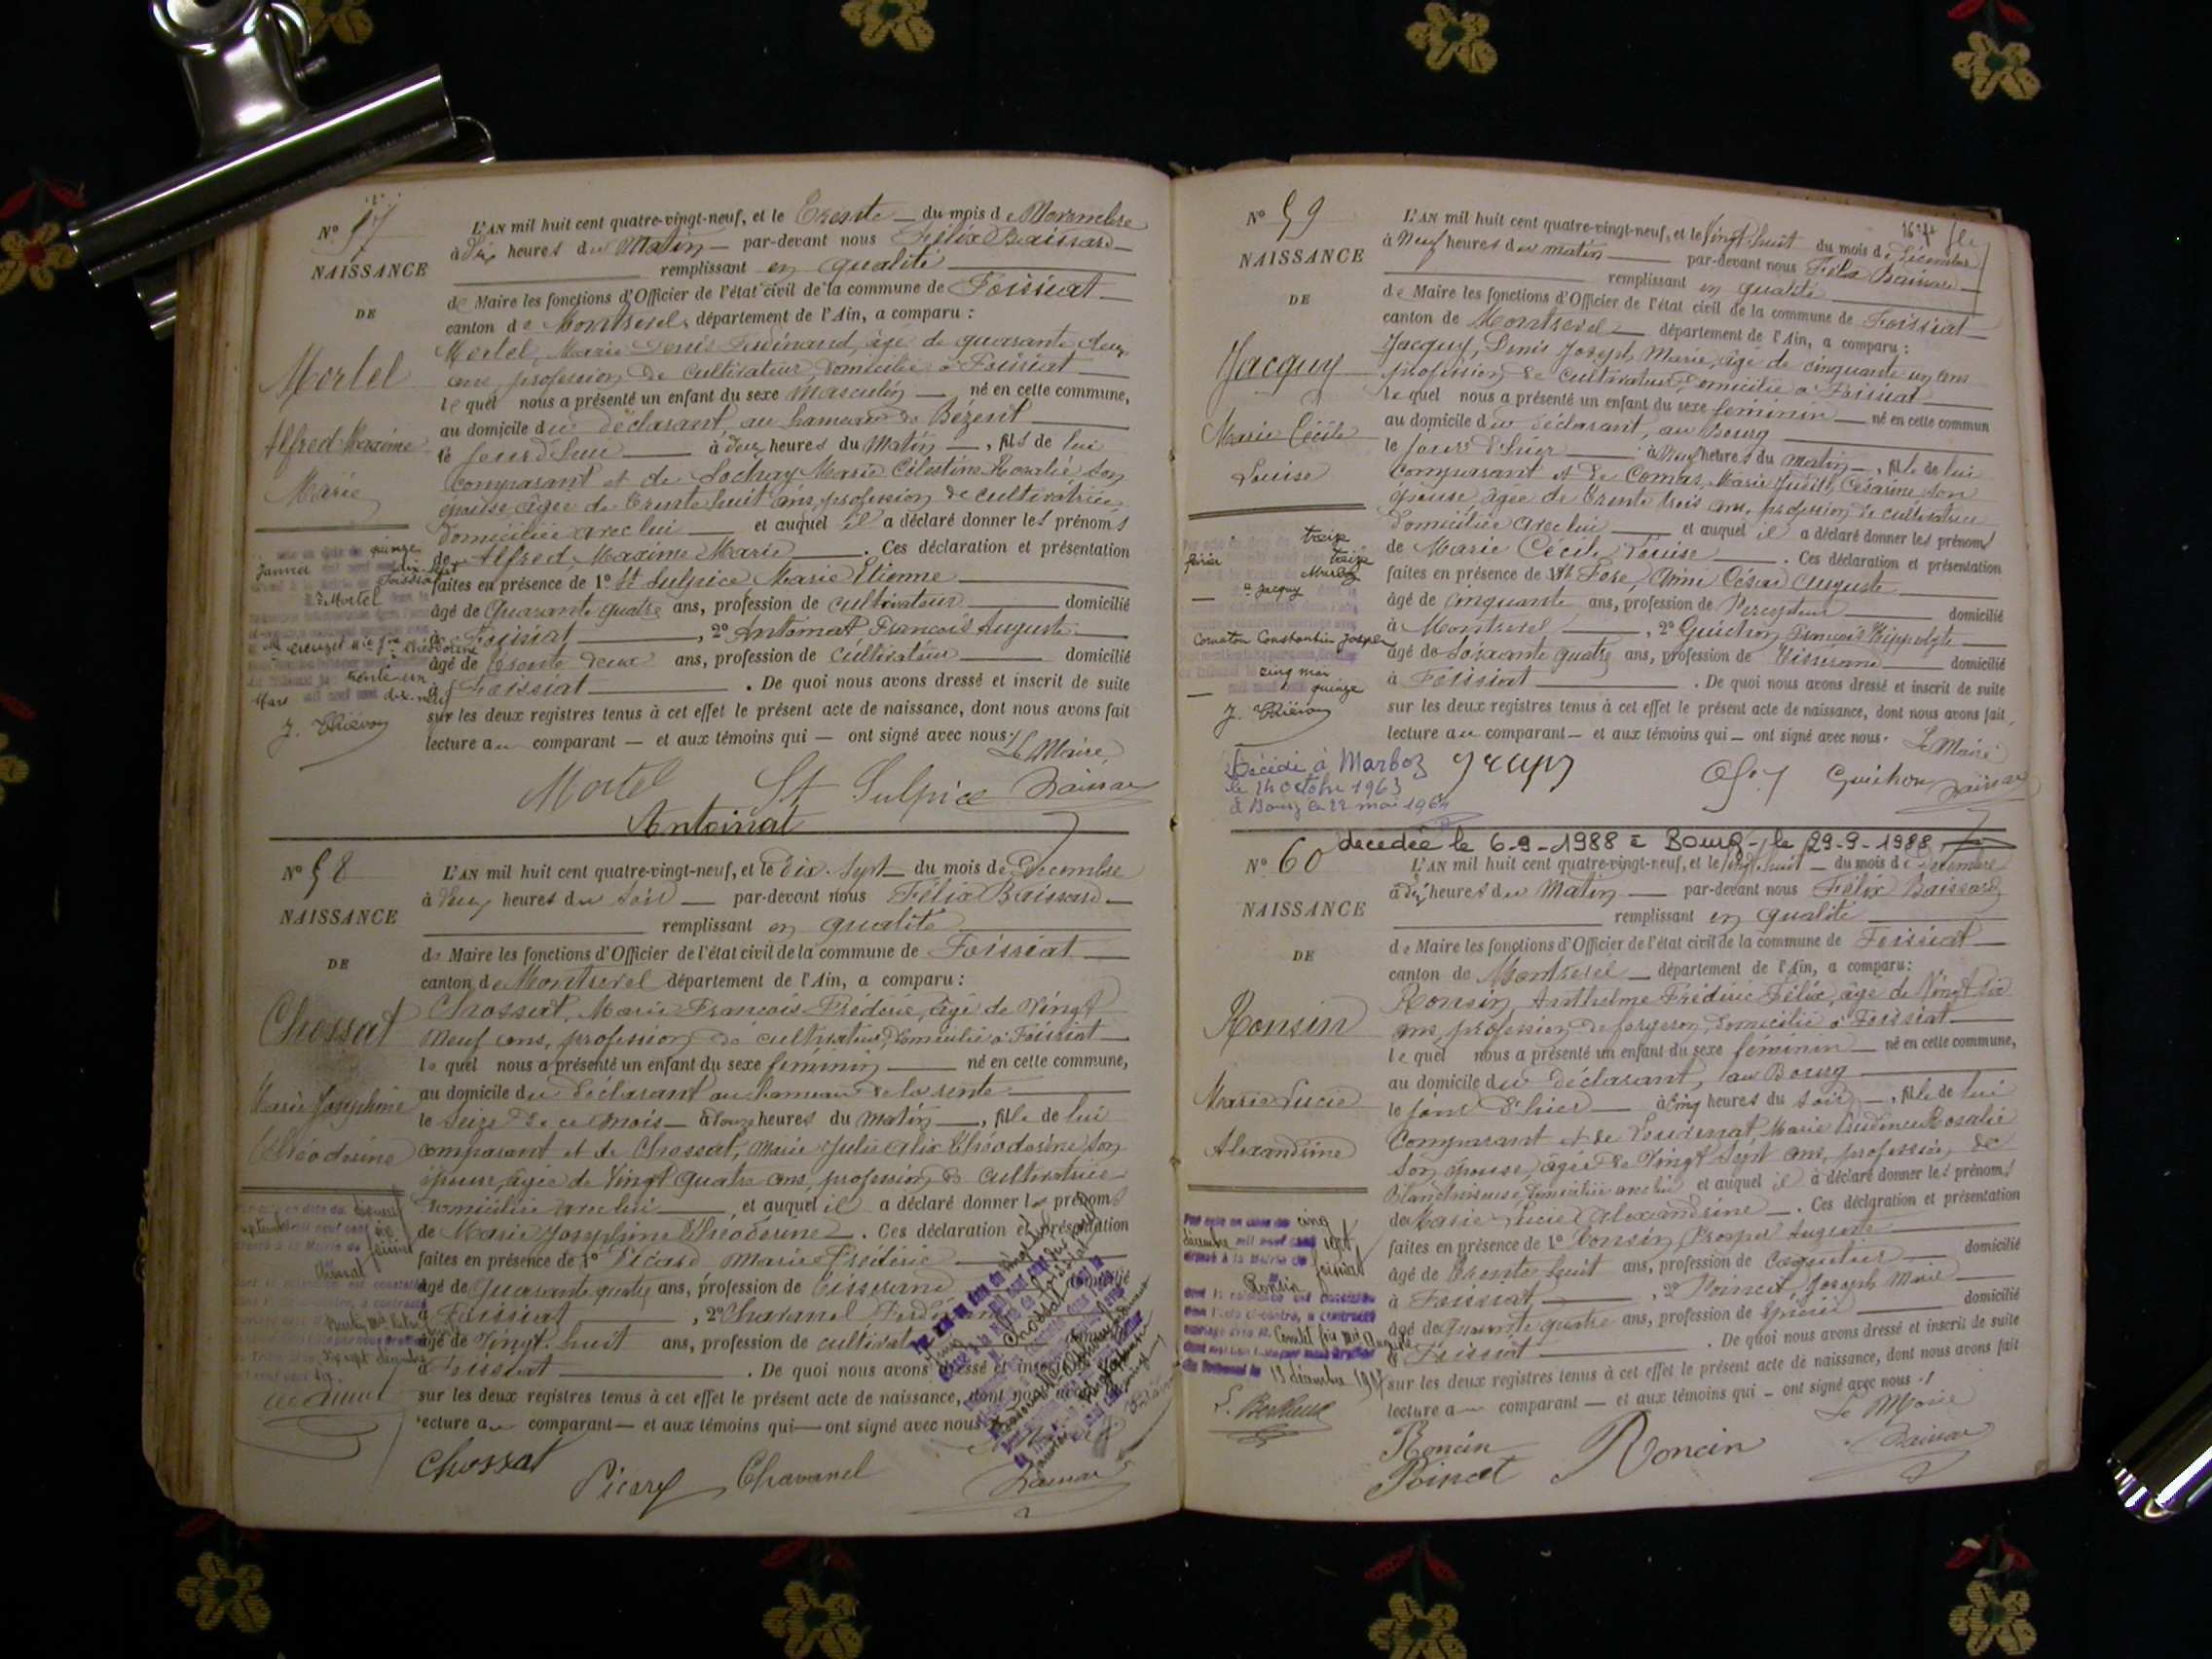 N° 57
NAISSANCE
DE
Mortel
Alfred Maxime
Marie
L'AN mil huit cent quatre-vingt-neuf, et le Trente du mois de Novembre
à dix heures du Matin par-devant nous Félix Baissard
remplissant en qualité
de Maire les fonctions d'Officier de l'état civil de la commune de Foissiat
canton de Montrevel département de l'Ain, a comparu :
Mortel, Marie Denis Ferdinand, âgé de quarante deux
ans, profession de cultivateur, domicilié à Foissiat
le quel nous a présenté un enfant du sexe masculin né en cette commune,
au domicile du déclarant, au hameau de Bézent
le jour d'hier à deux heures du Matin, fils de lui
comparant et de Sochay Marie Célestine Rosalie son
épouse âgée de trente huit ans, profession de cultivatrice
domiciliée avec lui et auquel il a déclaré donner les prénoms
de Alfred, Maxime Marie. Ces déclaration et présentation
faites en présence de 1° St Sulpice Marie Etienne
âgé de Quarante quatre ans, profession de cultivateur domicilié
à Foissiat, 2° Antoinat François Auguste
âgé de Trente deux ans, profession de cultivateur domicilié
à Foissiat. De quoi nous avons dressé et inscrit de suite
sur les deux registres tenus à cet effet le présent acte de naissance, dont nous avons fait
lecture au comparant — et aux témoins qui — ont signé avec nous.
Le Maire
Mortel St Sulpice
Antoinat
quinze
Janvier
dix-sept
Foissiat
Mortel
trente-un
Mars dix-neuf
N° 58
NAISSANCE
DE
Chossat
Marie Joséphine
Théodorine
L'AN mil huit cent quatre-vingt-neuf, et le Dix-Sept du mois de Décembre
à deux heures du soir par-devant nous Félix Baissard
remplissant en qualité
de Maire les fonctions d'Officier de l'état civil de la commune de Foissiat
canton de Montrevel département de l'Ain, a comparu :
Chossat, Marie François Frédéric, âgé de Vingt
Neuf ans, profession de cultivateur, domicilié à Foissiat
le quel nous a présenté un enfant du sexe féminin né en cette commune,
au domicile du déclarant au hameau de
le seize de ce mois à onze heures du Matin, fille de lui
comparant et de Chossat, Marie Julie Alix Théodorine son
épouse, âgée de Vingt quatre ans, profession de cultivatrice
domiciliée avec lui et auquel il a déclaré donner les prénoms
de Marie Joséphine Théodorine. Ces déclaration et présentation
faites en présence de 1° Picard Marie Frédéric
âgé de Quarante quatre ans, profession de Tisserand domicilié
à Foissiat, 2° Chavanel
âgé de Vingt huit ans, profession de
à Foissiat. De quoi nous avons dressé et inscrit
sur les deux registres tenus à cet effet le présent acte de naissance, dont nous
lecture au comparant — et aux témoins qui — ont signé avec nous
Chossat Picard Chavanel
N° 59
NAISSANCE
DE
Jacquy
Marie Cécile
Louise
L'AN mil huit cent quatre-vingt-neuf, et le Vingt huit du mois de Décembre
à Neuf heures du matin par-devant nous Félix Baissard
remplissant en qualité
de Maire les fonctions d'Officier de l'état civil de la commune de Foissiat
canton de Montrevel département de l'Ain, a comparu :
Jacquy, Denis Joseph Marie, âgé de cinquante un ans
profession de cultivateur, domicilié à Foissiat
le quel nous a présenté un enfant du sexe féminin né en cette commun
au domicile du déclarant, au Bourg
le jour d'hier à Neuf heures du matin, fille de lui
comparant et de Comas, Marie Judith Césarine son
épouse, âgée de trente trois ans, profession de cultivatrice
domiciliée avec lui et auquel il a déclaré donner les prénoms
de Marie Cécile Louise. Ces déclaration et présentation
faites en présence de Aimé César Auguste
âgé de cinquante ans, profession de Percepteur domicilié
à Montrevel, 2° Guichon François Hippolyte
âgé de soixante quatre ans, profession de Tisserand domicilié
à Foissiat. De quoi nous avons dressé et inscrit de suite
sur les deux registres tenus à cet effet le présent acte de naissance, dont nous avons fait
lecture au comparant — et aux témoins qui — ont signé avec nous. Le Maire
Guichon
treize
février treize
Marboz
Jacquy
Constantin Joseph
cinq mai
quinze
Décédé à Marboz
le 14 octobre 1963
décédée le 6-9-1988 à Bourg, le 29-9-1988
N° 60
NAISSANCE
DE
Ronsin
Marie Lucie
Alexandrine
L'AN mil huit cent quatre-vingt-neuf, et le Vingt huit du mois de Décembre
à dix heures du Matin par-devant nous Félix Baissard
remplissant en qualité
de Maire les fonctions d'Officier de l'état civil de la commune de Foissiat
canton de Montrevel département de l'Ain, a comparu :
Ronsin, Anthelme Frédéric Félix, âgé de Vingt six
ans, profession de forgeron, domicilié à Foissiat
le quel nous a présenté un enfant du sexe féminin né en cette commune,
au domicile du déclarant, au Bourg
le jour d'hier à cinq heures du soir, fille de lui
comparant et de Marie Prudence Rosalie
son épouse, âgée de Vingt Sept ans, profession de
Blanchisseuse, domiciliée avec lui et auquel il a déclaré donner les prénoms
de Marie Lucie Alexandrine. Ces déclaration et présentation
faites en présence de 1° Ronsin, Prosper Auguste
âgé de Trente huit ans, profession de domicilié
à Foissiat, 2° Poincet, Joseph Marie
âgé de quarante quatre ans, profession de Epicier domicilié
à Foissiat. De quoi nous avons dressé et inscrit de suite
sur les deux registres tenus à cet effet le présent acte de naissance, dont nous avons fait
lecture au comparant — et aux témoins qui — ont signé avec nous.
Le Maire
Roncin Roncin
Poincet
cinq
décembre mil neuf cent sept
Foissiat
Ronsin
13 décembre